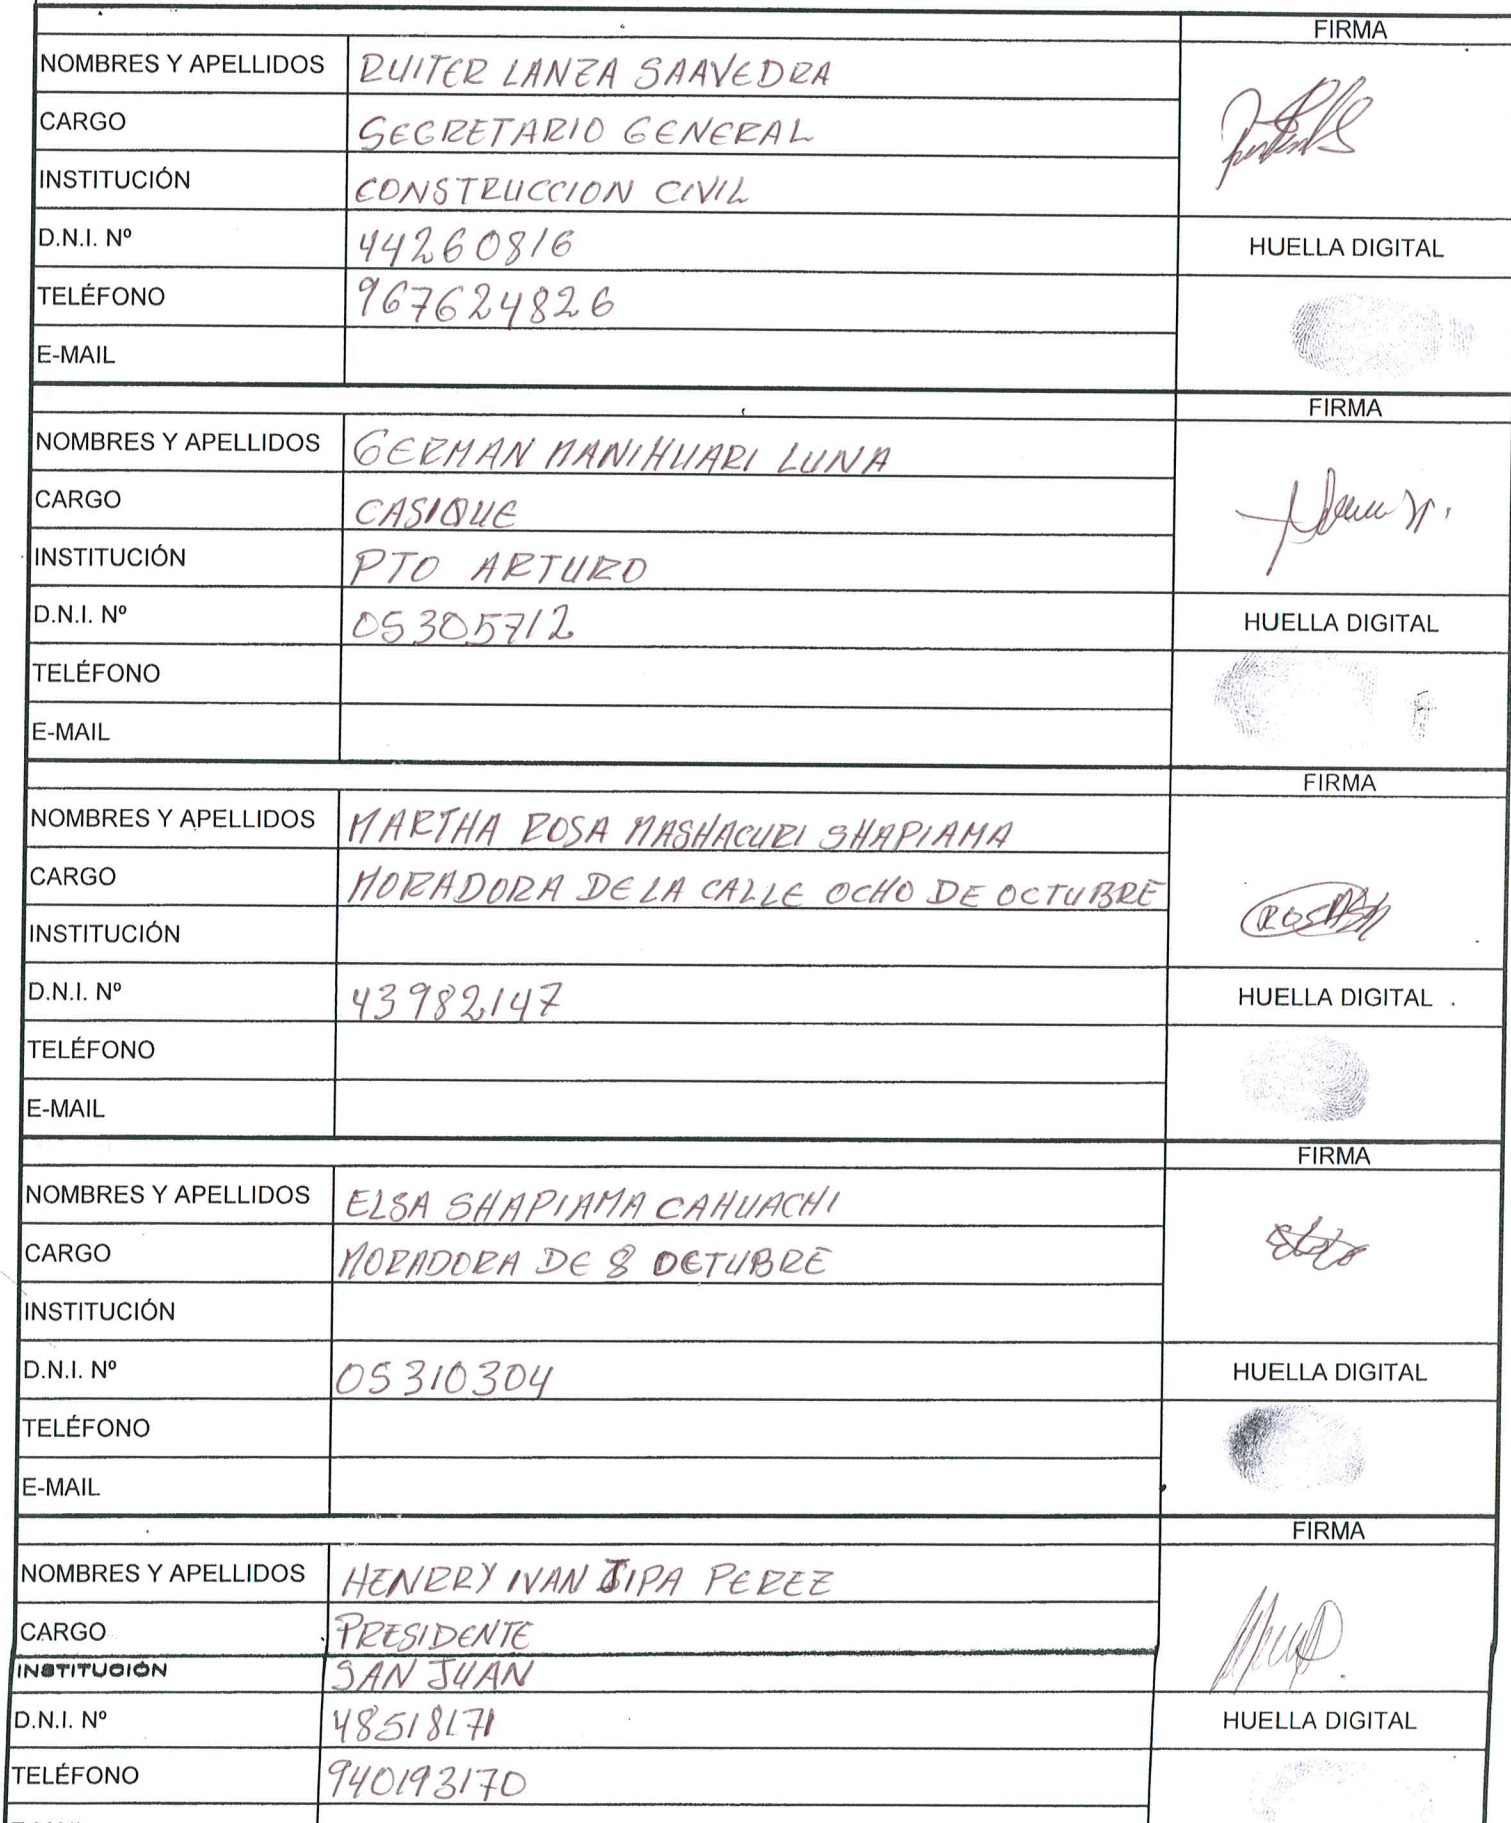 FIRMA
NOMBRES Y APELLIDOS RUITER LANZA SAAVEDRA
CARGO SECRETARIO GENERAL
INSTITUCIÓN CONSTRUCCION CIVIL
D.N.I. Nº 44260816 HUELLA DIGITAL
TELÉFONO 967624826
E-MAIL
FIRMA
NOMBRES Y APELLIDOS GERMAN MANIHUARI LUNA
CARGO CASIQUE
INSTITUCIÓN PTO ARTURO
D.N.I. Nº 05305712 HUELLA DIGITAL
TELÉFONO
E-MAIL
FIRMA
NOMBRES Y APELLIDOS MARTHA ROSA MASHACURI SHAPIAMA
CARGO MORADORA DE LA CALLE OCHO DE OCTUBRE
INSTITUCIÓN
D.N.I. Nº 43982147 HUELLA DIGITAL
TELÉFONO
E-MAIL
FIRMA
NOMBRES Y APELLIDOS ELSA SHAPIAMA CAHUACHI
CARGO MORADORA DE 8 OCTUBRE
INSTITUCIÓN
D.N.I. Nº 05310304 HUELLA DIGITAL
TELÉFONO
E-MAIL
FIRMA
NOMBRES Y APELLIDOS HENRRY IVAN SIPA PEREZ
CARGO PRESIDENTE
INSTITUCIÓN SAN JUAN
D.N.I. Nº 48518171 HUELLA DIGITAL
TELÉFONO 940193170